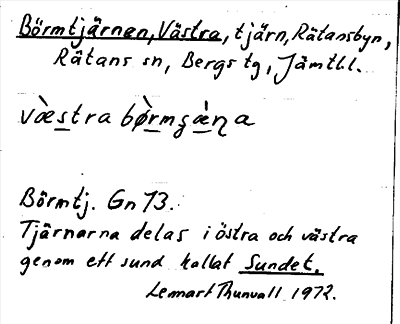 Börmtjärnen, Västra, tjärn, Rätansbyn,
Rätans sn, Bergs tg, Jämtl.
væ̀stra bø̀rmʂæ̀ɳa
Börmtj. Gn 73.
Tjärnarna delas i östra och västra
genom ett sund kallat Sundet.
Lennart Thunvall 1972.